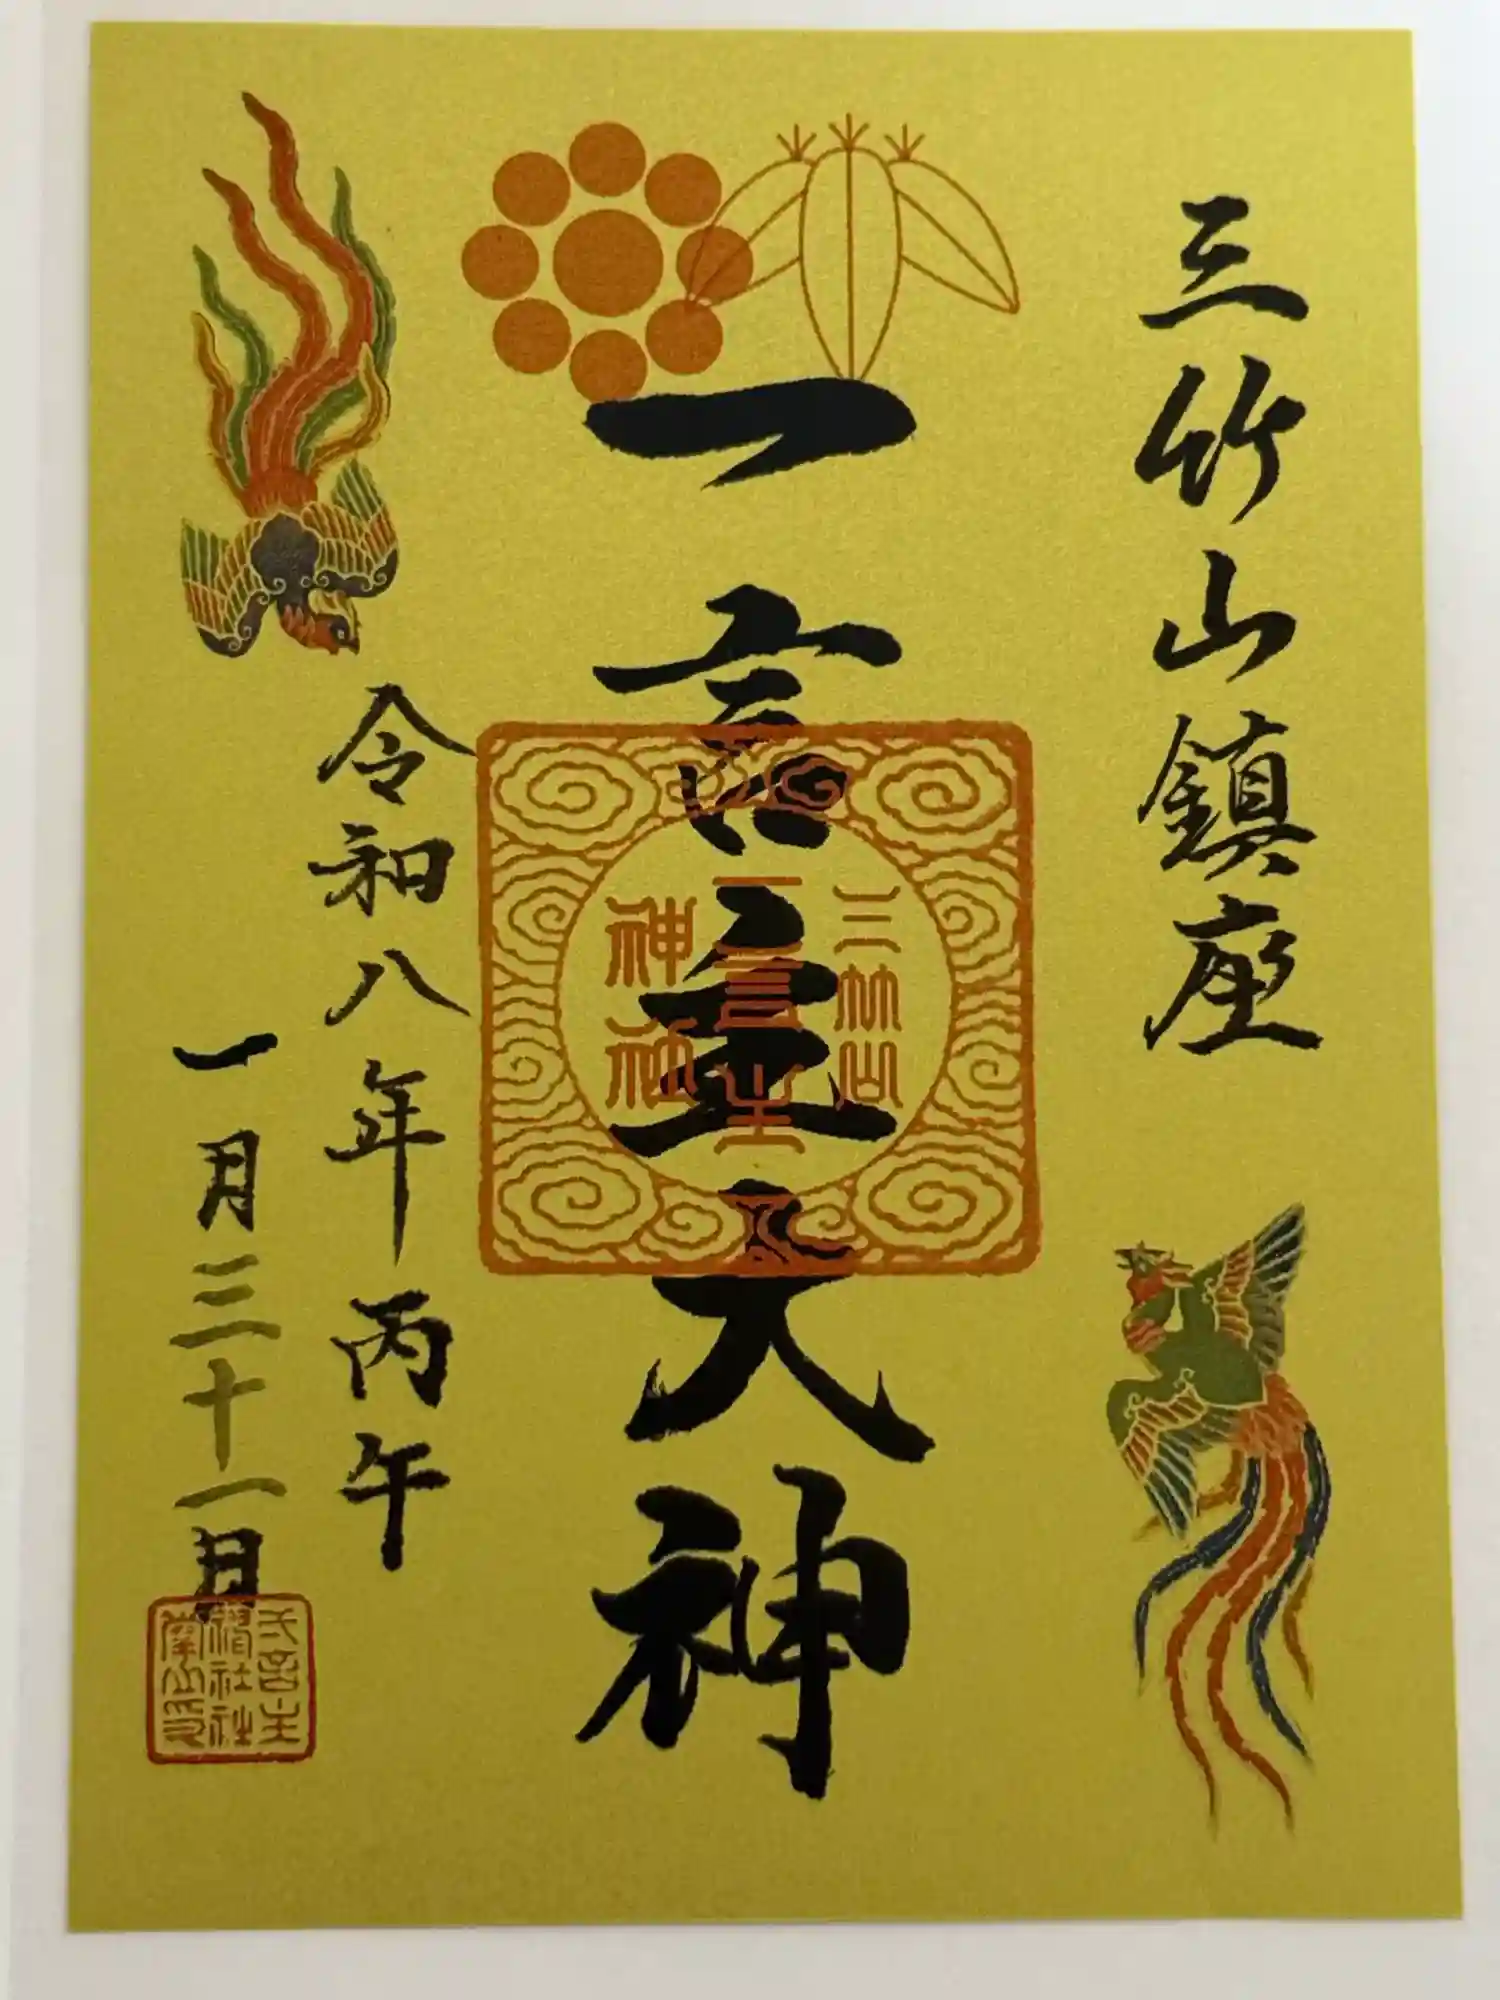 三竹山鎮座
一言主大神
三竹山
一言主
神社
令和八年丙午
一月三十一日